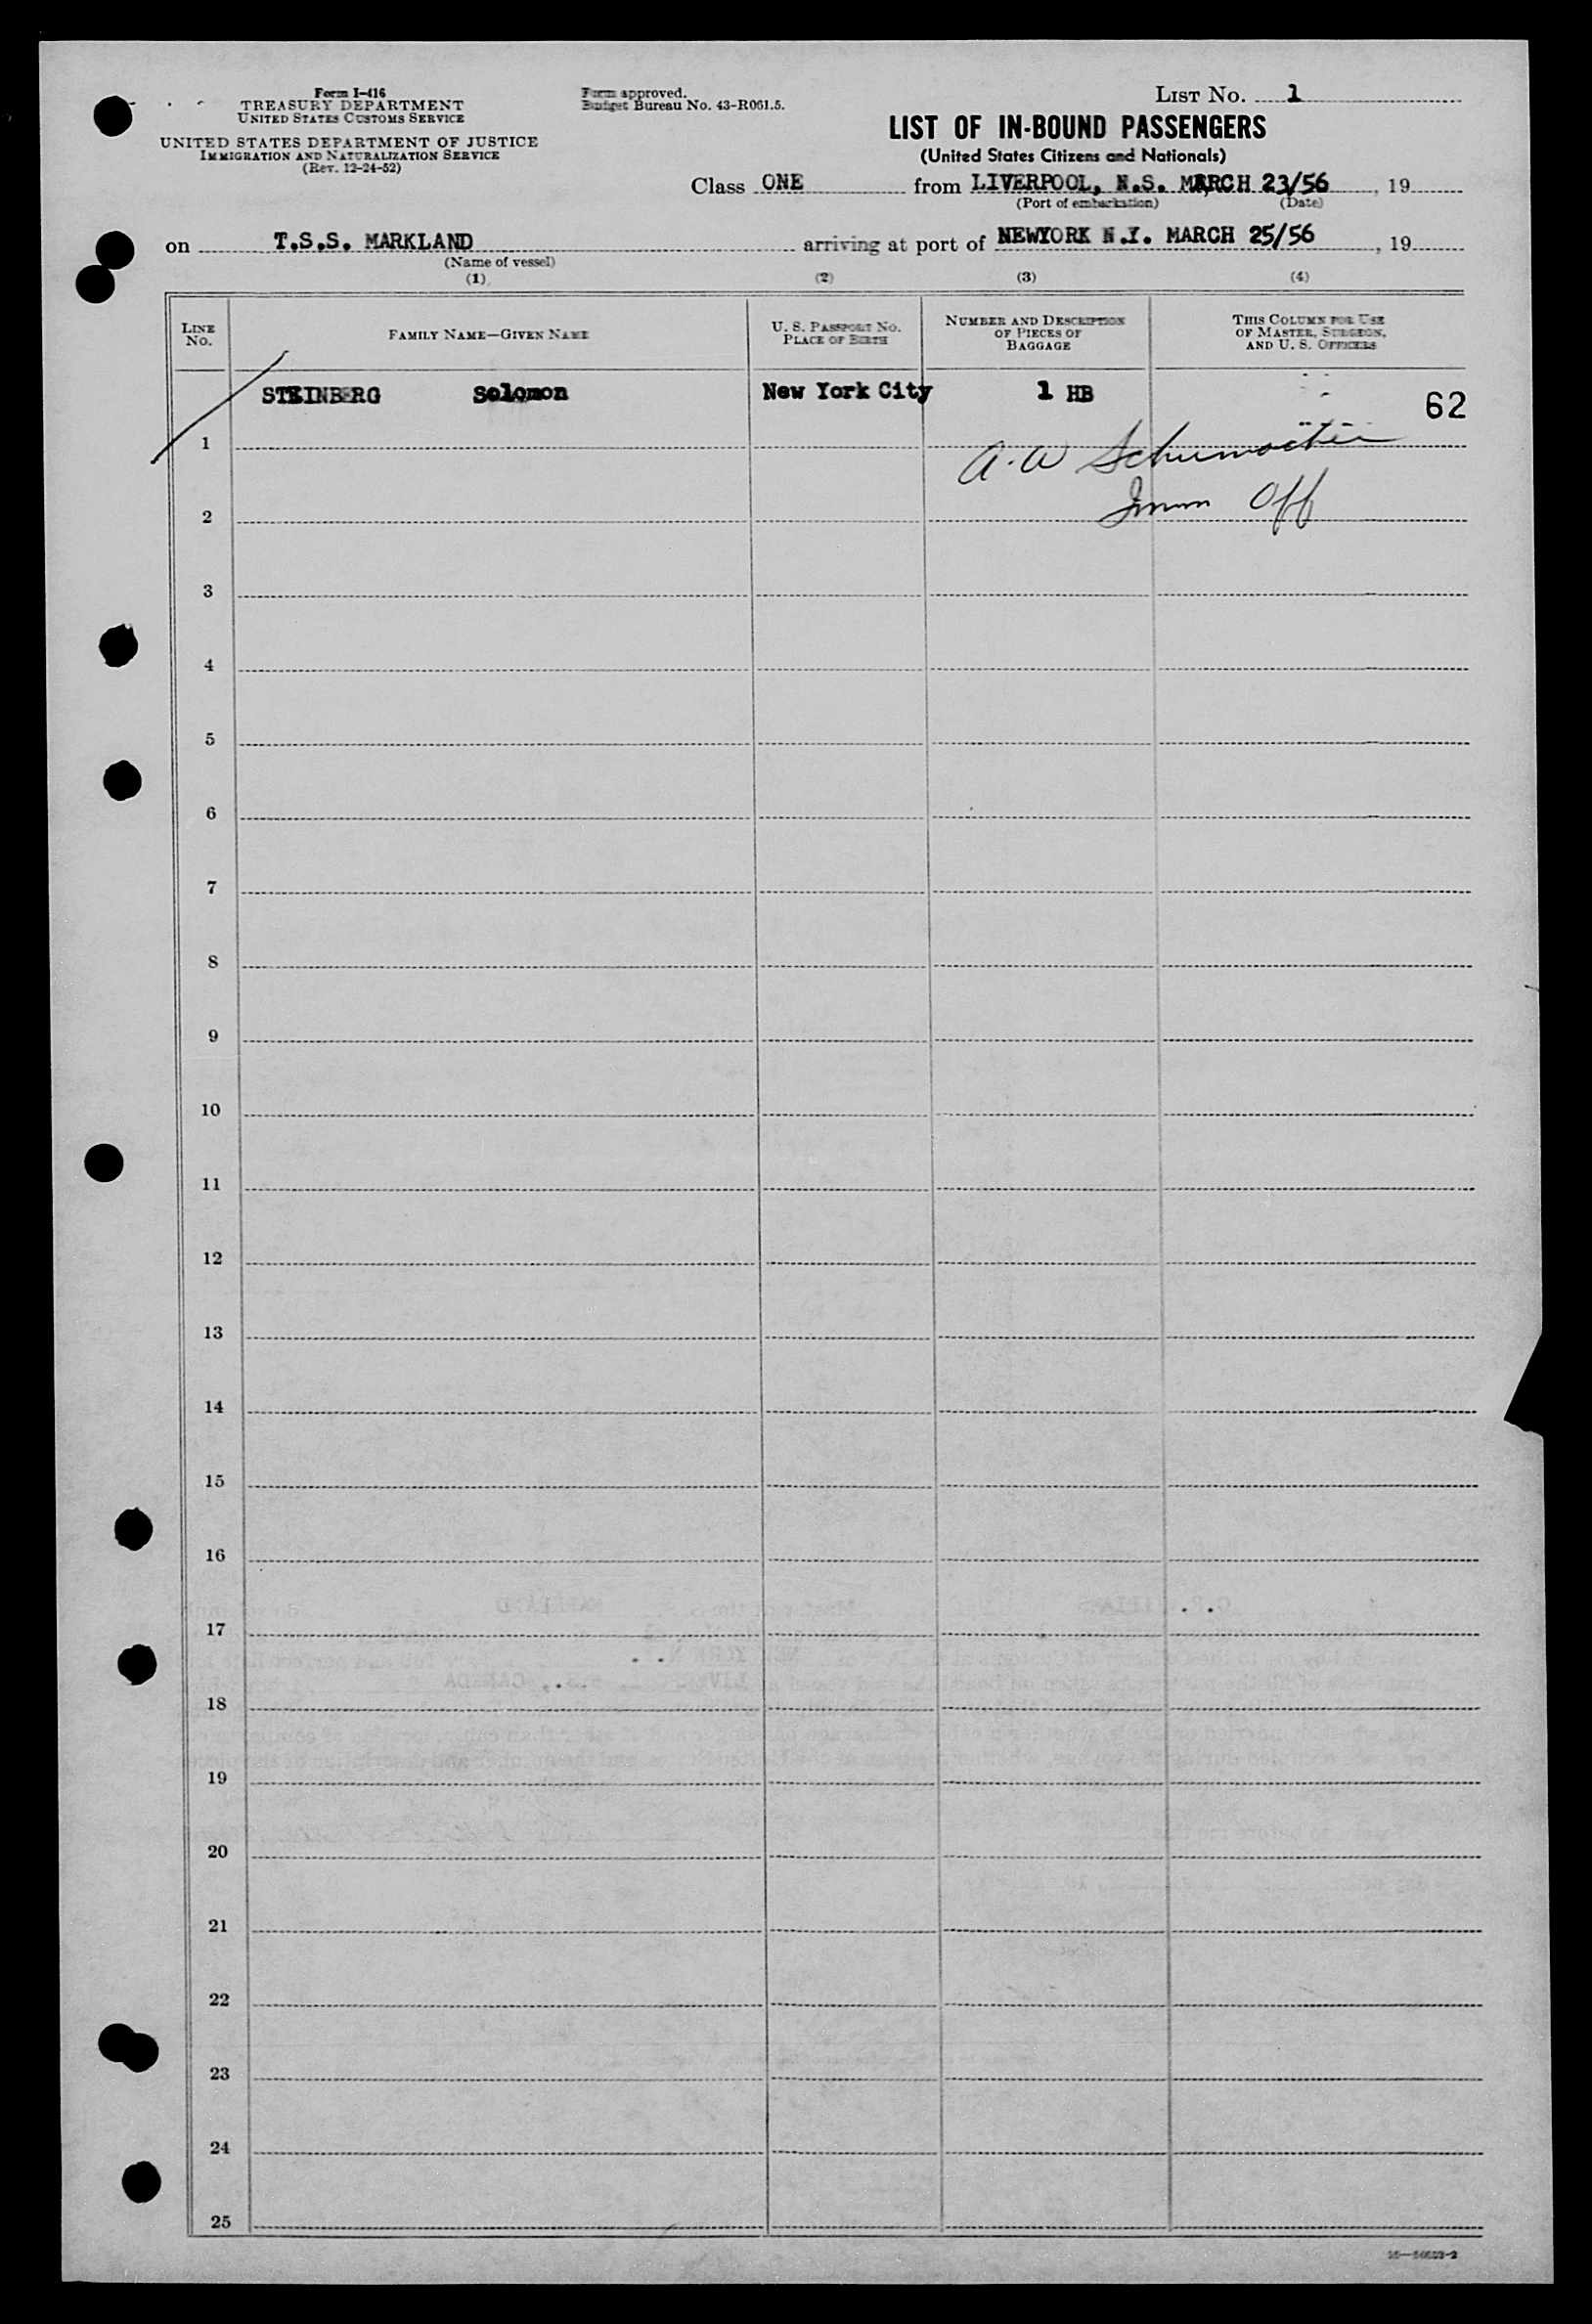 Form I-416
TREASURY DEPARTMENT
UNITED STATES CUSTOMS SERVICE
UNITED STATES DEPARTMENT OF JUSTICE
IMMIGRATION AND NATURALIZATION SERVICE
(Rev. 12-24-52)
Form approved.
Budget Bureau No. 43-R061.5.
LIST NO. 1
LIST OF IN-BOUND PASSENGERS
(United States Citizens and Nationals)
Class ONE from LIVERPOOL, N.S. MARCH 23/56, 19
(Port of embarkation) (Date)
on T.S.S. MARKLAND arriving at port of NEWYORK N.Y. MARCH 25/56, 19
(Name of vessel)
(1) (2) (3) (4)
LINE NO. FAMILY NAME—GIVEN NAME U. S. PASSPORT NO. PLACE OF BIRTH NUMBER AND DESCRIPTION OF PIECES OF BAGGAGE THIS COLUMN FOR USE OF MASTER, SURGEON, AND U. S. OFFICERS
STEINBERG Solomon New York City 1 HB 62
1
A. W Schumacher
2 Imm Off
3
4
5
6
7
8
9
10
11
12
13
14
15
16
17
18
19
20
21
22
23
24
25